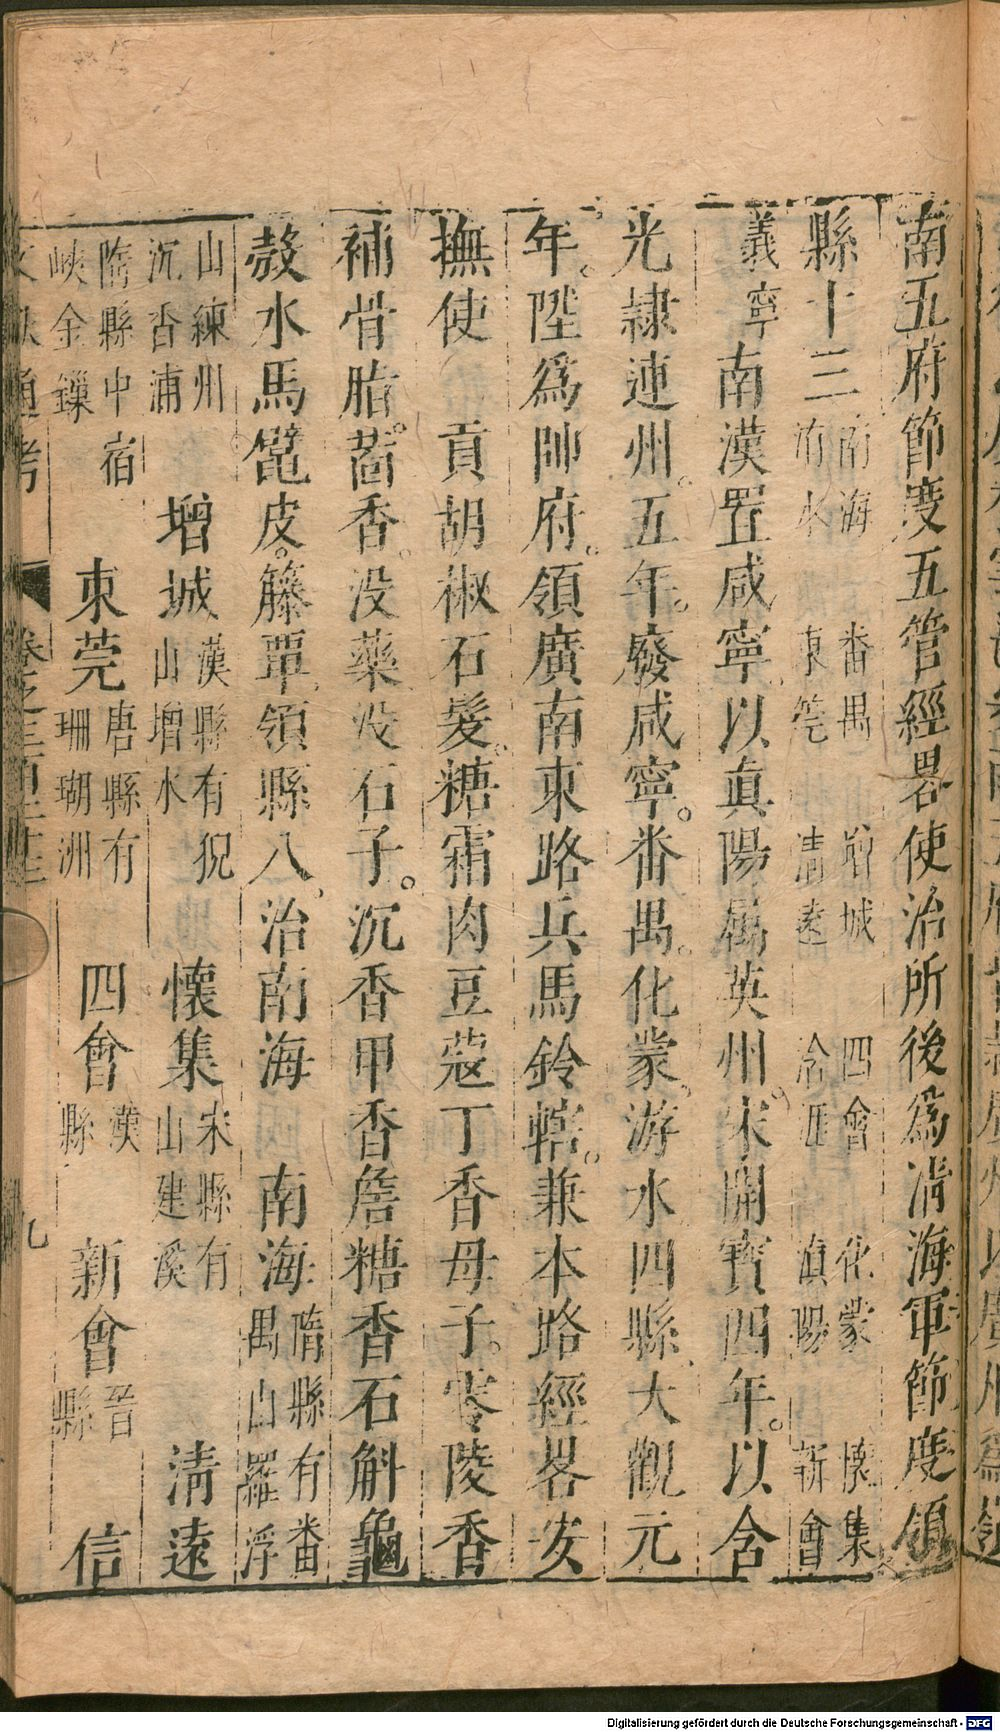 南五府節度五管經畧使治所後爲清海軍節度領
縣十三南海 番禺 增城 四會 化蒙 懷集 洊水 東筦 清遠 浛洭 湞陽 新會
義寧南漢置咸寧以真陽屬英州宋開寶四年以含
光隸連州五年廢咸寧番禺化蒙游水四縣大觀元
年陞爲帥府領廣南東路兵馬鈐轄兼本路經畧安
撫使 貢胡椒石髮糖霜肉豆蔻丁香母子零陵香
補骨脂茴香没藥没石子沉香甲香詹糖香石斛龜
殼水馬鼊皮籐簟領縣八治南海 南海隋縣有番禺山羅浮
山練州沉香浦 增城漢縣有猊山增水 懷集宋縣有山建溪 清遠
隋縣中宿峽金鏁 東莞唐縣有珊瑚洲 四會漢縣 新會晋縣 信
文獻通考 卷之三百二十三 九
Digitalisierung gefördert durch die Deutsche Forschungsgemeinschaft - DFG